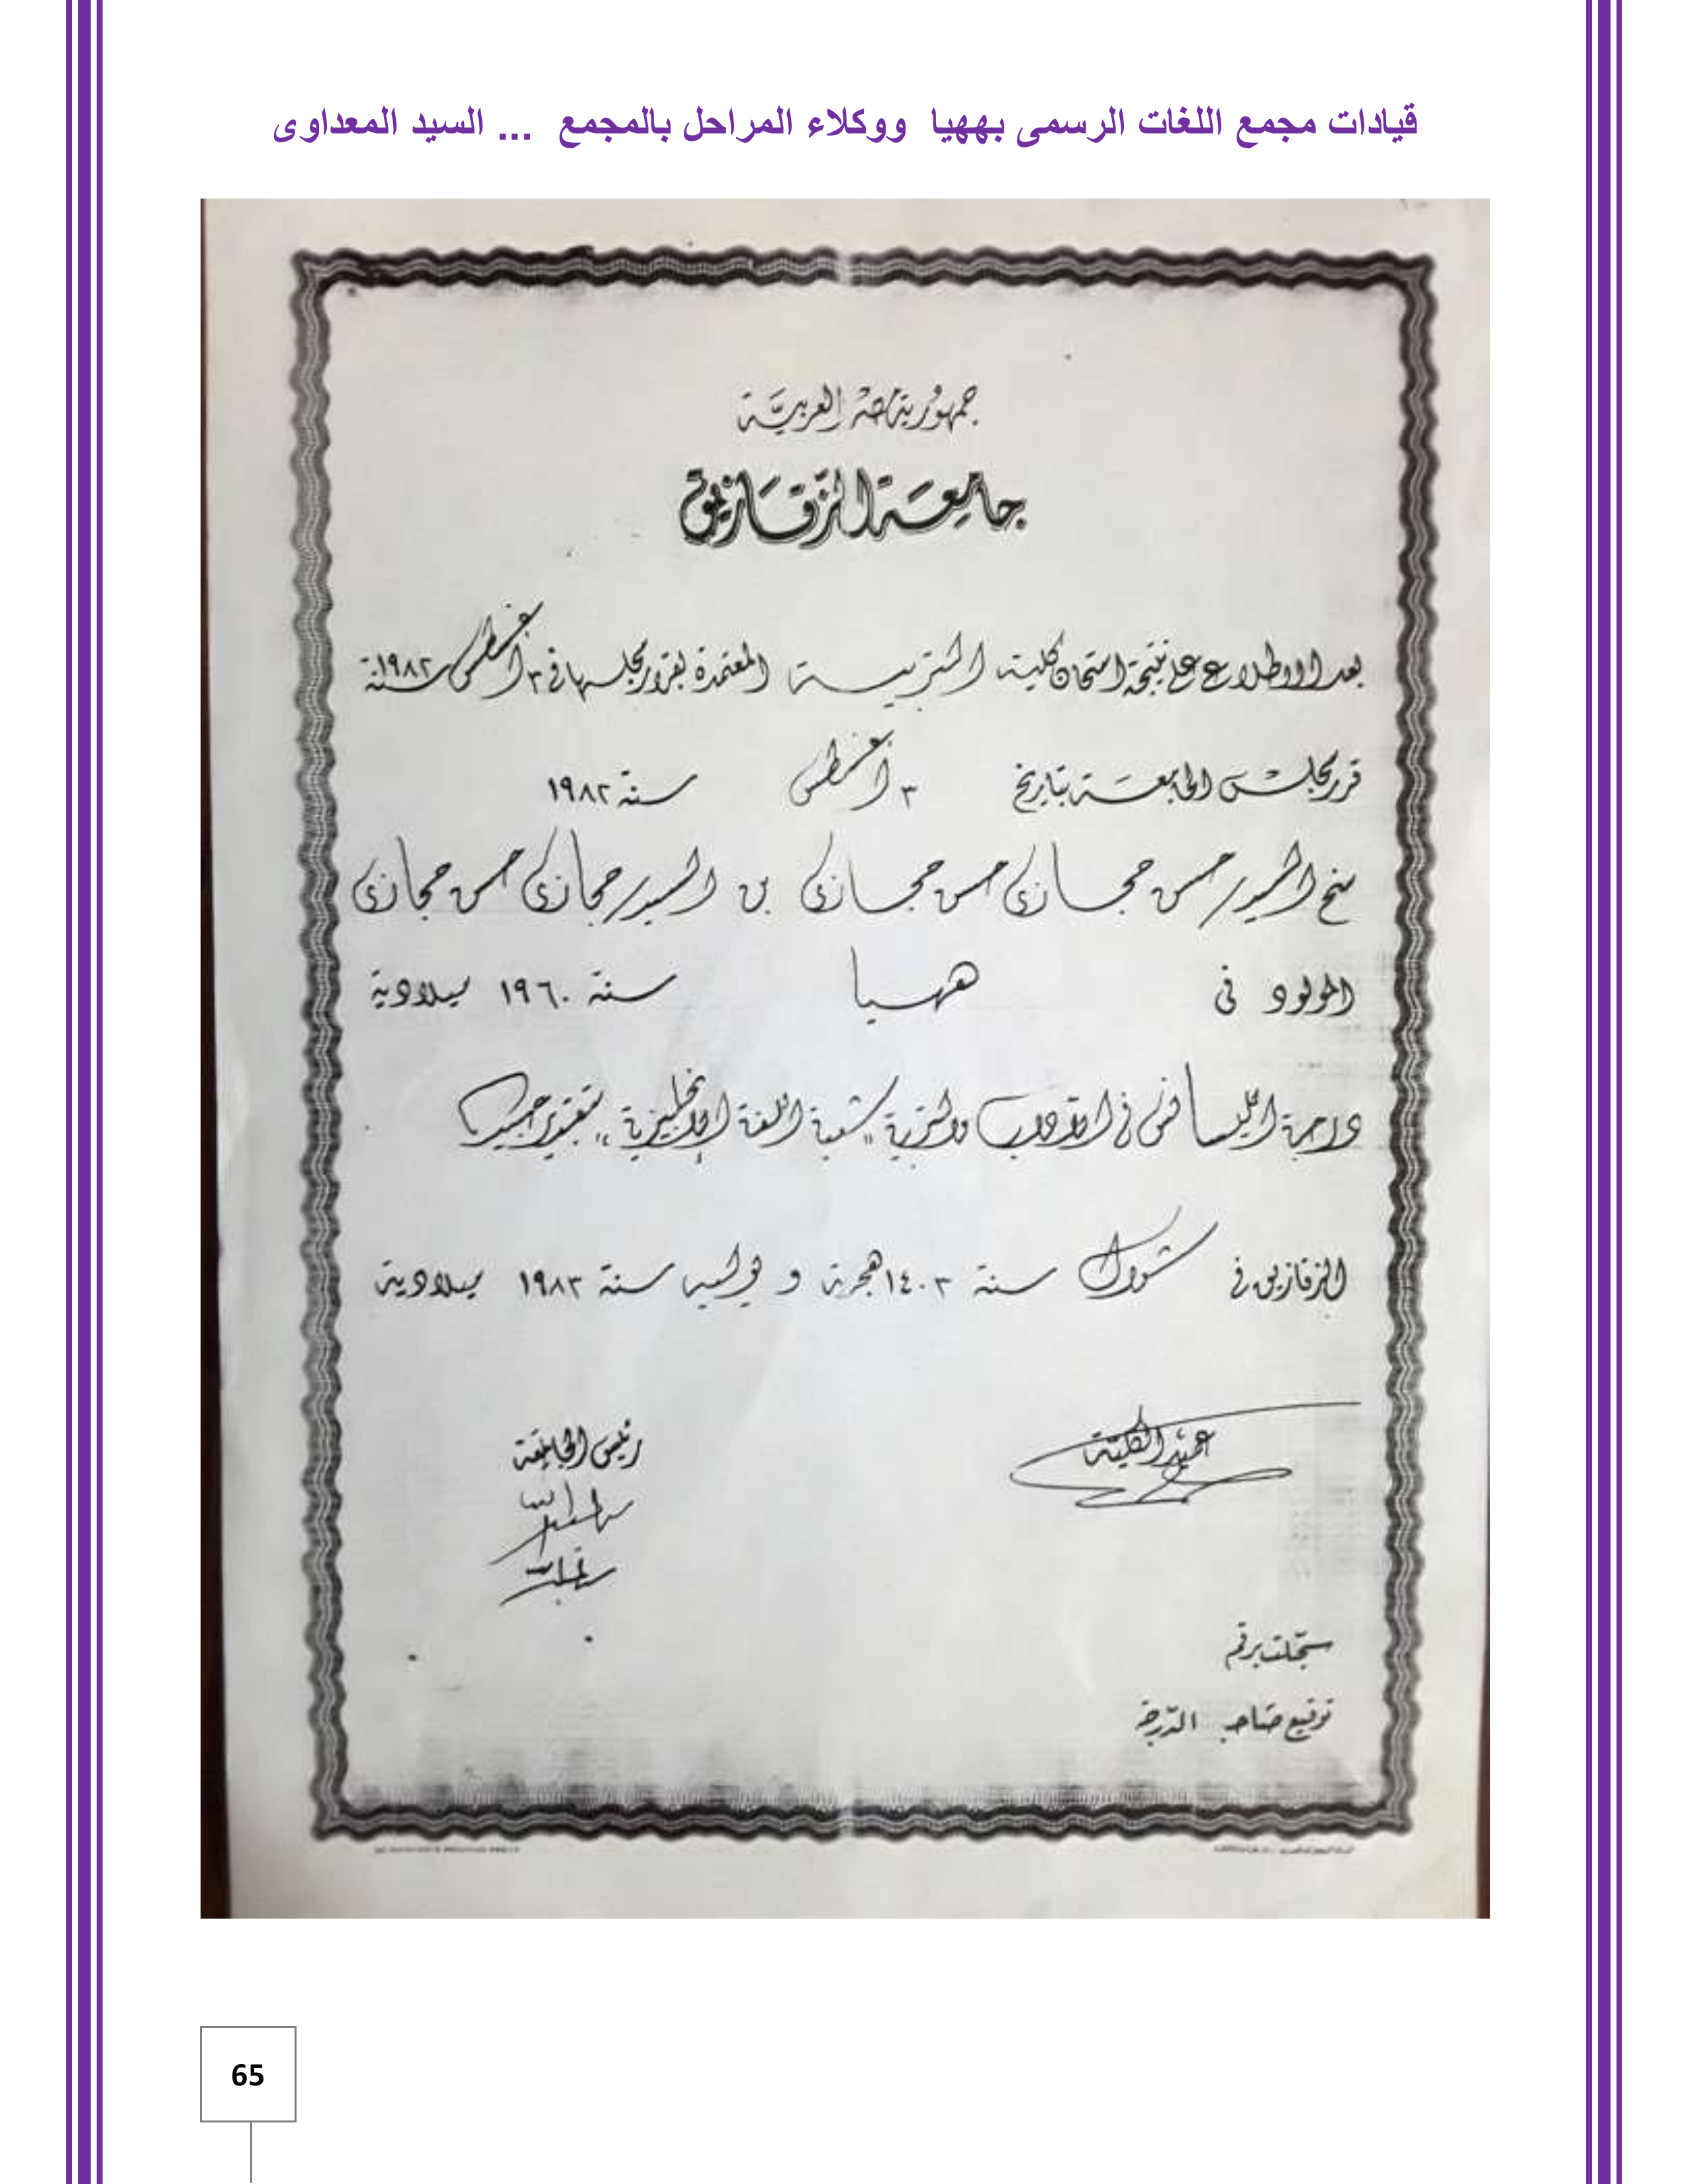 قيادات مجمع اللغات الرسمى بههيا ووكلاء المراحل بالمجمع ... السيد المعداوى
جمهورية مصر العربية
جامعة الزقازيق
بعد الاطلاع على نتيجة امتحان كلية التربية المعتمدة بقرار مجلسها في ٣ أغسطس سنة ١٩٨٢
قرر مجلس الجامعة بتاريخ ٣ أغسطس سنة ١٩٨٢
منح السيد/ حسن حجازى حسن حجازى بن السيد/ حجازى حسن حجازى
المولود فى ههيا سنة ١٩٦٠ ميلادية
درجة الليسانس فى الآداب والتربية "شعبة اللغة الإنجليزية" بتقدير جيد
الزقازيق في شوال سنة ١٤٠٣ هجرية و يوليه سنة ١٩٨٣ ميلادية
عميد الكلية
رئيس الجامعة
سجلت برقم
توقيع صاحب الدرجة
65